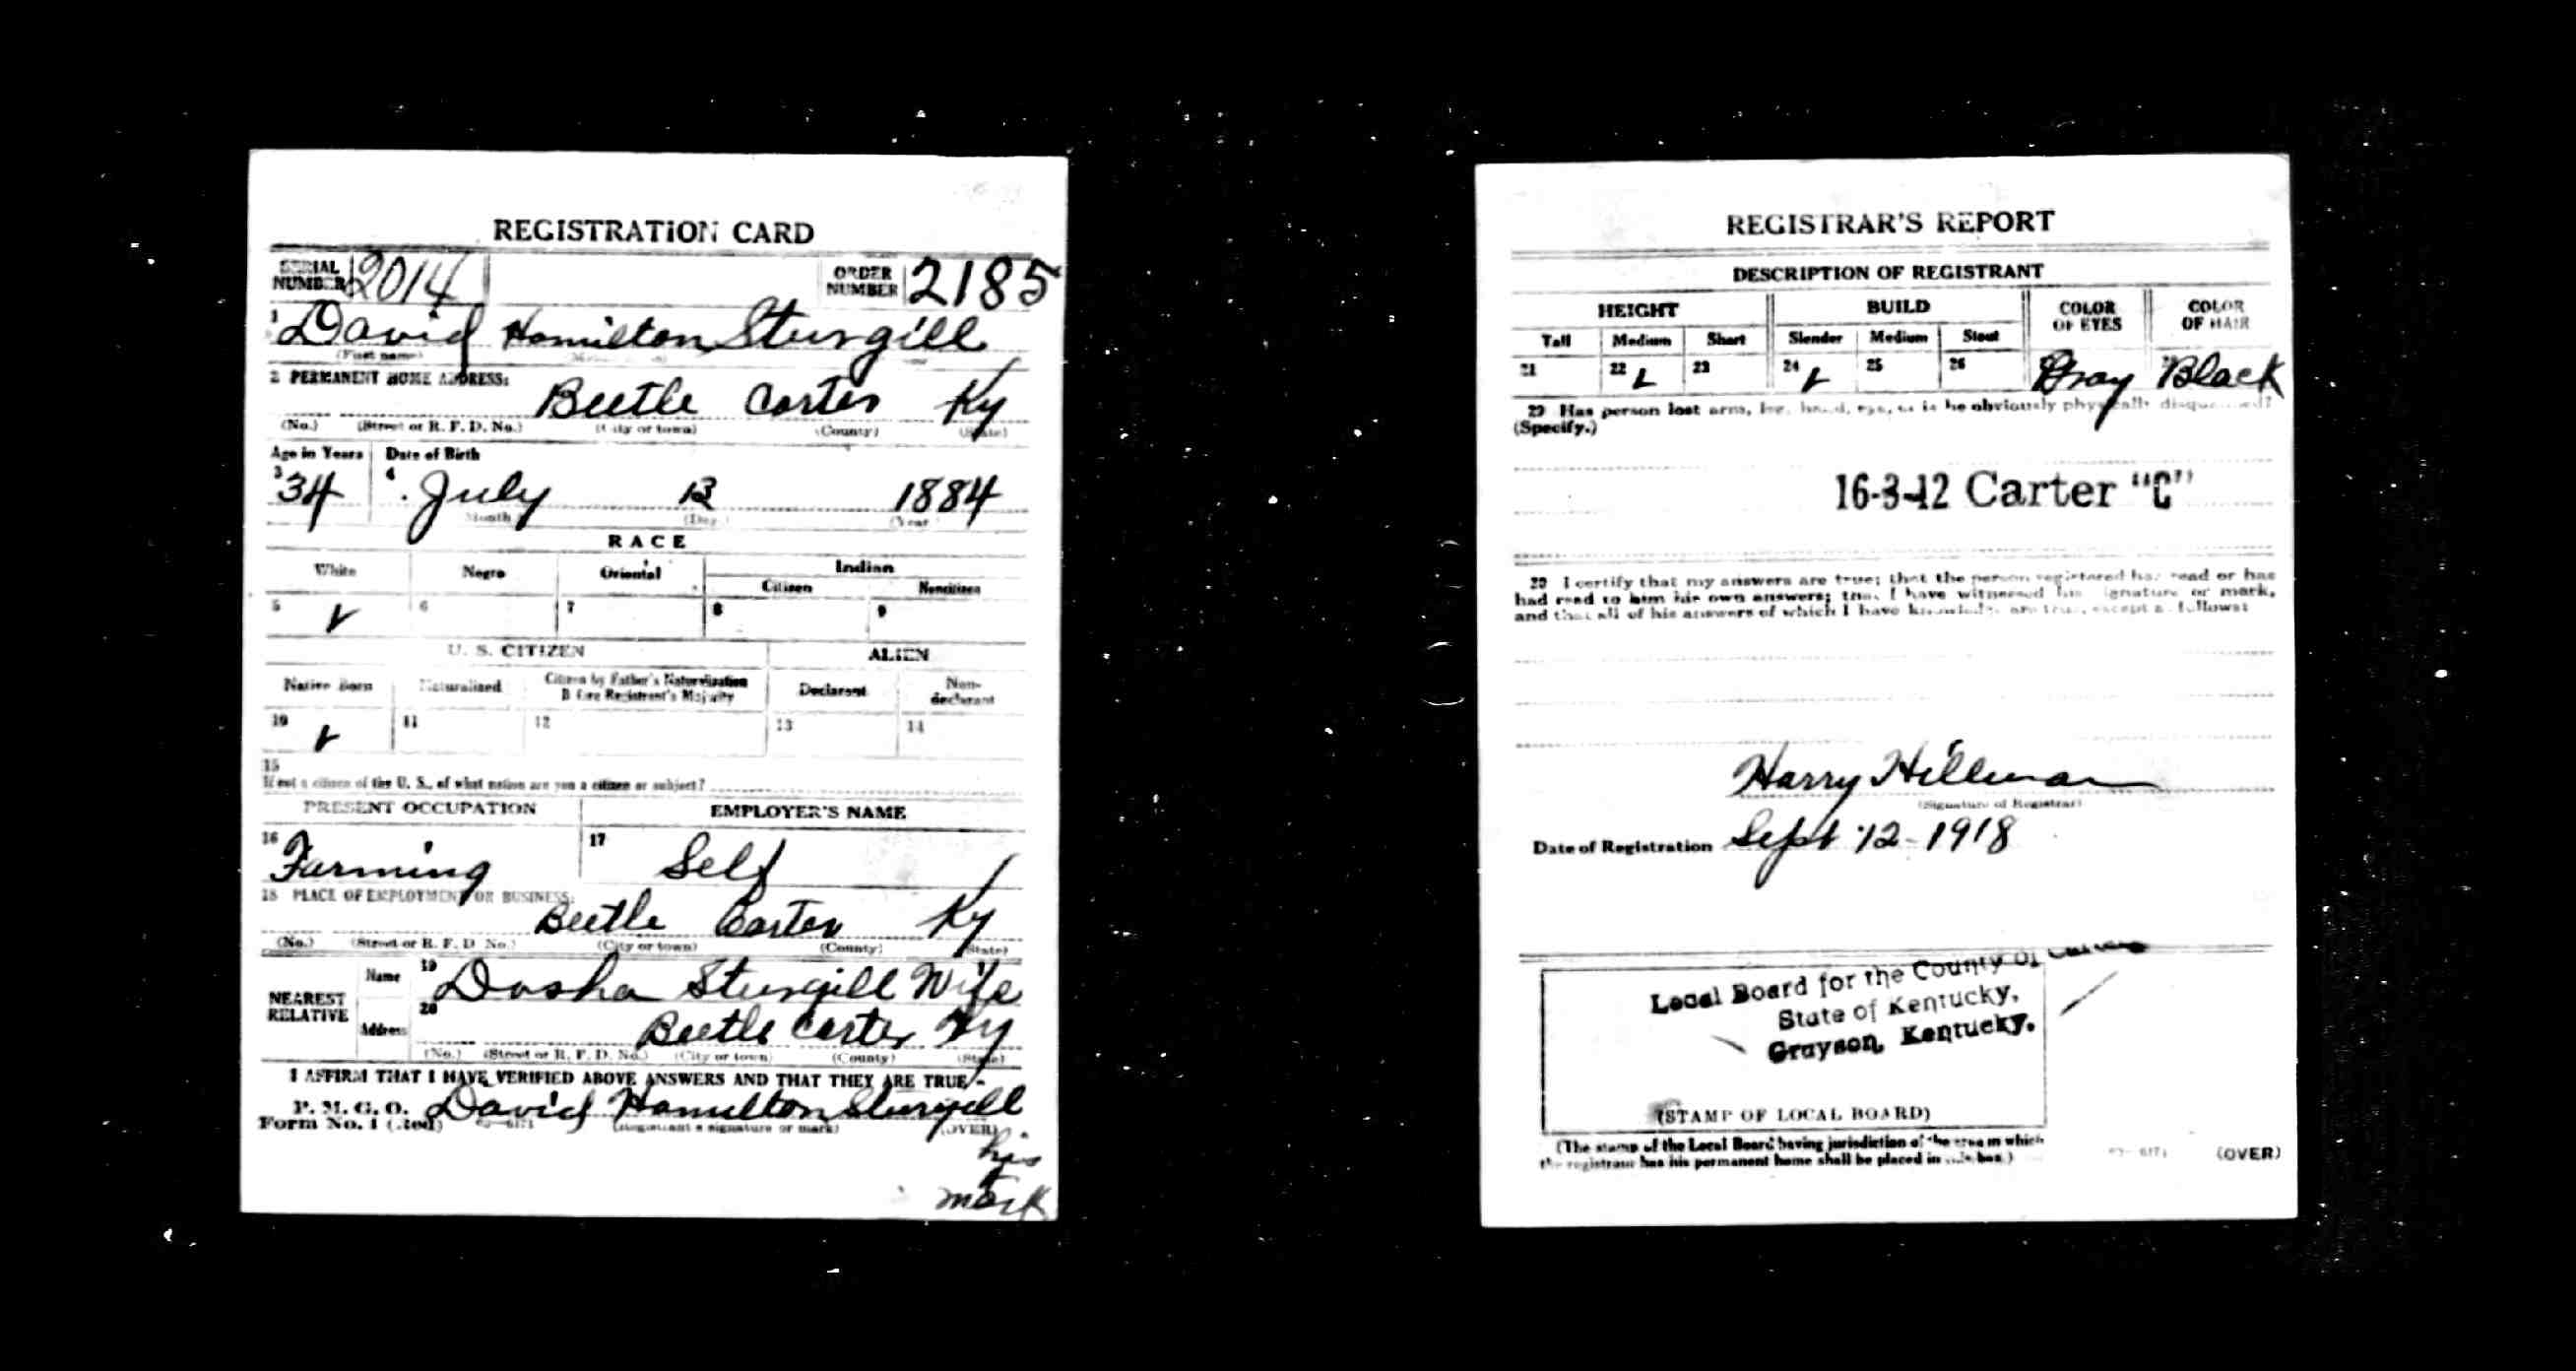 REGISTRATION CARD
SERIAL NUMBER 2014 ORDER NUMBER 2185
1 David Hamilton Sturgill
(First name)
2 PERMANENT HOME ADDRESS:
Beetle Carter Ky
(No.) (Street or R. F. D. No.) (City or town) (County) (State)
Age in Years Date of Birth
3 34 4 July 1884
(Month) (Day) (Year)
RACE
White Negro Oriental Indian
Citizen Noncitizen
5 ✓ 6 7 8 9
U. S. CITIZEN ALIEN
Native Born Naturalized Citizen by Father's Naturalization Before Registrant's Majority Declarant Non-declarant
10 ✓ 11 12 13 14
15
If not a citizen of the U. S., of what nation are you a citizen or subject?
PRESENT OCCUPATION EMPLOYER'S NAME
16 Farming 17 Self
18 PLACE OF EMPLOYMENT OR BUSINESS:
Beetle Carter Ky
(No.) (Street or R. F. D. No.) (City or town) (County) (State)
NEAREST RELATIVE Name 19 Dosha Sturgill Wife
Address 20 Beetle Carter Ky
(No.) (Street or R. F. D. No.) (City or town) (County) (State)
I AFFIRM THAT I HAVE VERIFIED ABOVE ANSWERS AND THAT THEY ARE TRUE
P. M. G. O.
Form No. 1 (Red) David Hamilton Sturgill
(Registrant's signature or mark) (OVER)
his
mark
REGISTRAR'S REPORT
DESCRIPTION OF REGISTRANT
HEIGHT BUILD COLOR OF EYES COLOR OF HAIR
Tall Medium Short Slender Medium Stout
21 22 ✓ 23 24 ✓ 25 26 Gray Black
29 Has person lost arm, leg, hand, eye, or is he obviously physically disqualified?
(Specify.)
16-3-12 Carter "C"
30 I certify that my answers are true; that the person registered has read or has
had read to him his own answers; that I have witnessed his signature or mark,
and that all of his answers of which I have knowledge are true, except as follows:
Harry Hillman
(Signature of Registrar)
Date of Registration Sept 12-1918
Local Board for the County of Carter
State of Kentucky,
Grayson, Kentucky.
(STAMP OF LOCAL BOARD)
(The stamp of the Local Board having jurisdiction of the area in which
the registrant has his permanent home shall be placed in this box.)
(OVER)